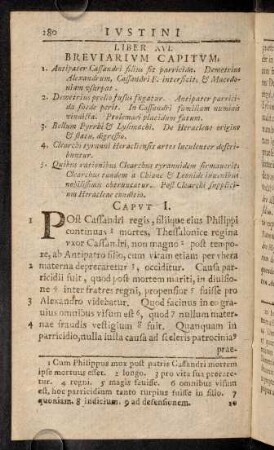 280 IVSTINI
LIBER XVI.
BREVIARIVM CAPITVM.
1. Antipater Cassandri filius fit parricida. Demetrius
Alexandrum, Cassandri F. interficit, & Macedo-
niam usurpat.
2. Demetrius prelio fusus fugatur. Antipater parrici-
da foede perit. In Cassandri familiam numinis
vindicta. Ptolemaei placidum fatum.
3. Bellum Pyrrhi & Lysimachi. De Heracleae origine
& statu, digressio.
4. Clearchi tyranni Heracliensis artes luculenter descri-
buntur.
5. Quibus rationibus Clearchus tyrannidem firmaverit.
Clearchus tandem a Chione & Leonide iuvenibus
nobilissimis obtruncatur. Post Clearchi supplici-
um Heracleae conditio.
CAPVT I.
1 POst Cassandri regis, filiique eius Philippi
continuas 2 mortes, Thessalonice regina
uxor Cassandri, non magno 2 post tempo-
2 re, ab Antipatro filio, cum vitam etiam per ubera
materna deprecaretur 3, occiditur. Causa par-
ricidii fuit, quod post mortem mariti, in divisio-
ne 4 inter fratres regni, propensior 5 fuisse pro
3 Alexandro videbatur. Quod facinus in eo gra-
vius omnibus visum est 6, quod 7 nullum mater-
4 nae fraudis vestigium 8 fuit. Quanquam in
parricidio, nulla iusta causa ad sceleris patrocinia 9
prae-
1 Cum Philippus mox post patris Cassandri mortem
ipse mortuus esset. 2 longo. 3 pro vita sua precare-
tur. 4 regni. 5 magis favisse. 6 omnibus visum
est, hoc parricidium tanto turpius fuisse in filio. 7
quoniam. 8 indicium. 9 ad defensionem. 10